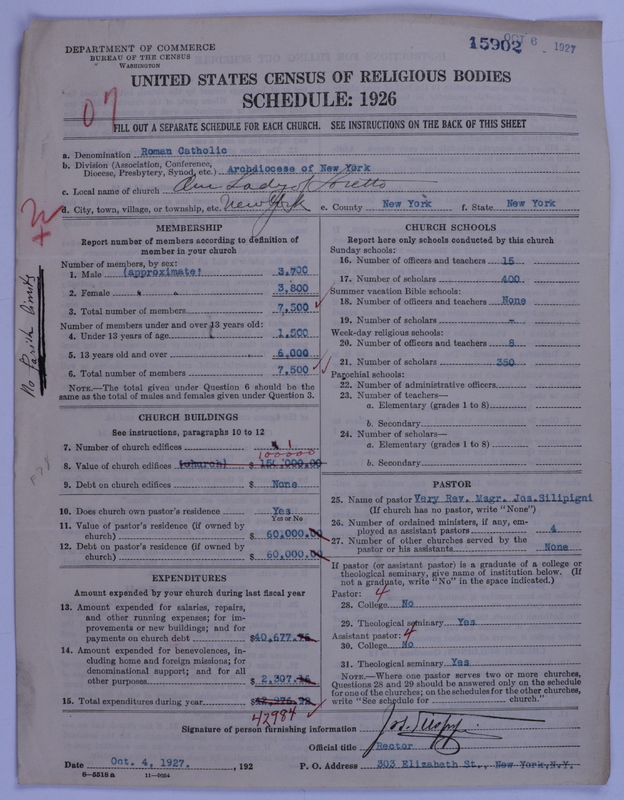 DEPARTMENT OF COMMERCE
BUREAU OF THE CENSUS
WASHINGTON
15902 OCT 6 1927
UNITED STATES CENSUS OF RELIGIOUS BODIES
SCHEDULE: 1926
07
FILL OUT A SEPARATE SCHEDULE FOR EACH CHURCH. SEE INSTRUCTIONS ON THE BACK OF THIS SHEET
a. Denomination Roman Catholic
b. Division (Association, Conference, Diocese, Presbytery, Synod, etc.) Archdiocese of New York
c. Local name of church Our Lady of Loretto
d. City, town, village, or township, etc. New York e. County New York f. State New York
No Parish limits
MEMBERSHIP
Report number of members according to definition of
member in your church
Number of members, by sex:
1. Male (approximate) 3,700
2. Female " 3,800
3. Total number of members 7,500
Number of members under and over 13 years old:
4. Under 13 years of age 1,500
5. 13 years old and over 6,000
6. Total number of members 7,500
NOTE.—The total given under Question 6 should be the
same as the total of males and females given under Question 3.
CHURCH BUILDINGS
See instructions, paragraphs 10 to 12
7. Number of church edifices 1
100000
8. Value of church edifices (church) $ 150,000.00
9. Debt on church edifices $ None
10. Does church own pastor's residence? Yes
Yes or No
11. Value of pastor's residence (if owned by
church) $ 60,000.00
12. Debt on pastor's residence (if owned by
church) $ 60,000.00
EXPENDITURES
Amount expended by your church during last fiscal year
13. Amount expended for salaries, repairs,
and other running expenses; for im-
provements or new buildings; and for
payments on church debt $40,677.
14. Amount expended for benevolences, in-
cluding home and foreign missions; for
denominational support; and for all
other purposes $ 2,307.
15. Total expenditures during year $
42984
CHURCH SCHOOLS
Report here only schools conducted by this church
Sunday schools:
16. Number of officers and teachers 15
17. Number of scholars 400
Summer vacation Bible schools:
18. Number of officers and teachers None
19. Number of scholars -
Week-day religious schools:
20. Number of officers and teachers 8
21. Number of scholars 350
Parochial schools:
22. Number of administrative officers
23. Number of teachers—
a. Elementary (grades 1 to 8)
b. Secondary
24. Number of scholars—
a. Elementary (grades 1 to 8)
b. Secondary
PASTOR
25. Name of pastor Very Rev. Msgr. Jos.Silipigni
(If church has no pastor, write "None")
26. Number of ordained ministers, if any, em-
ployed as assistant pastors 4
27. Number of other churches served by the
pastor or his assistants None
If pastor (or assistant pastor) is a graduate of a college or
theological seminary, give name of institution below. (If
not a graduate, write "No" in the space indicated.)
Pastor: 4
28. College No
29. Theological seminary Yes
Assistant pastor: 4
30. College No
31. Theological seminary Yes
NOTE.—Where one pastor serves two or more churches,
Questions 28 and 29 should be answered only on the schedule
for one of the churches; on the schedules for the other churches,
write "See schedule for church."
Signature of person furnishing information
Official title Rector
Date Oct. 4, 1927. , 192 P. O. Address 303 Elizabeth St., New York,N.Y.
8—5518a 11—9064